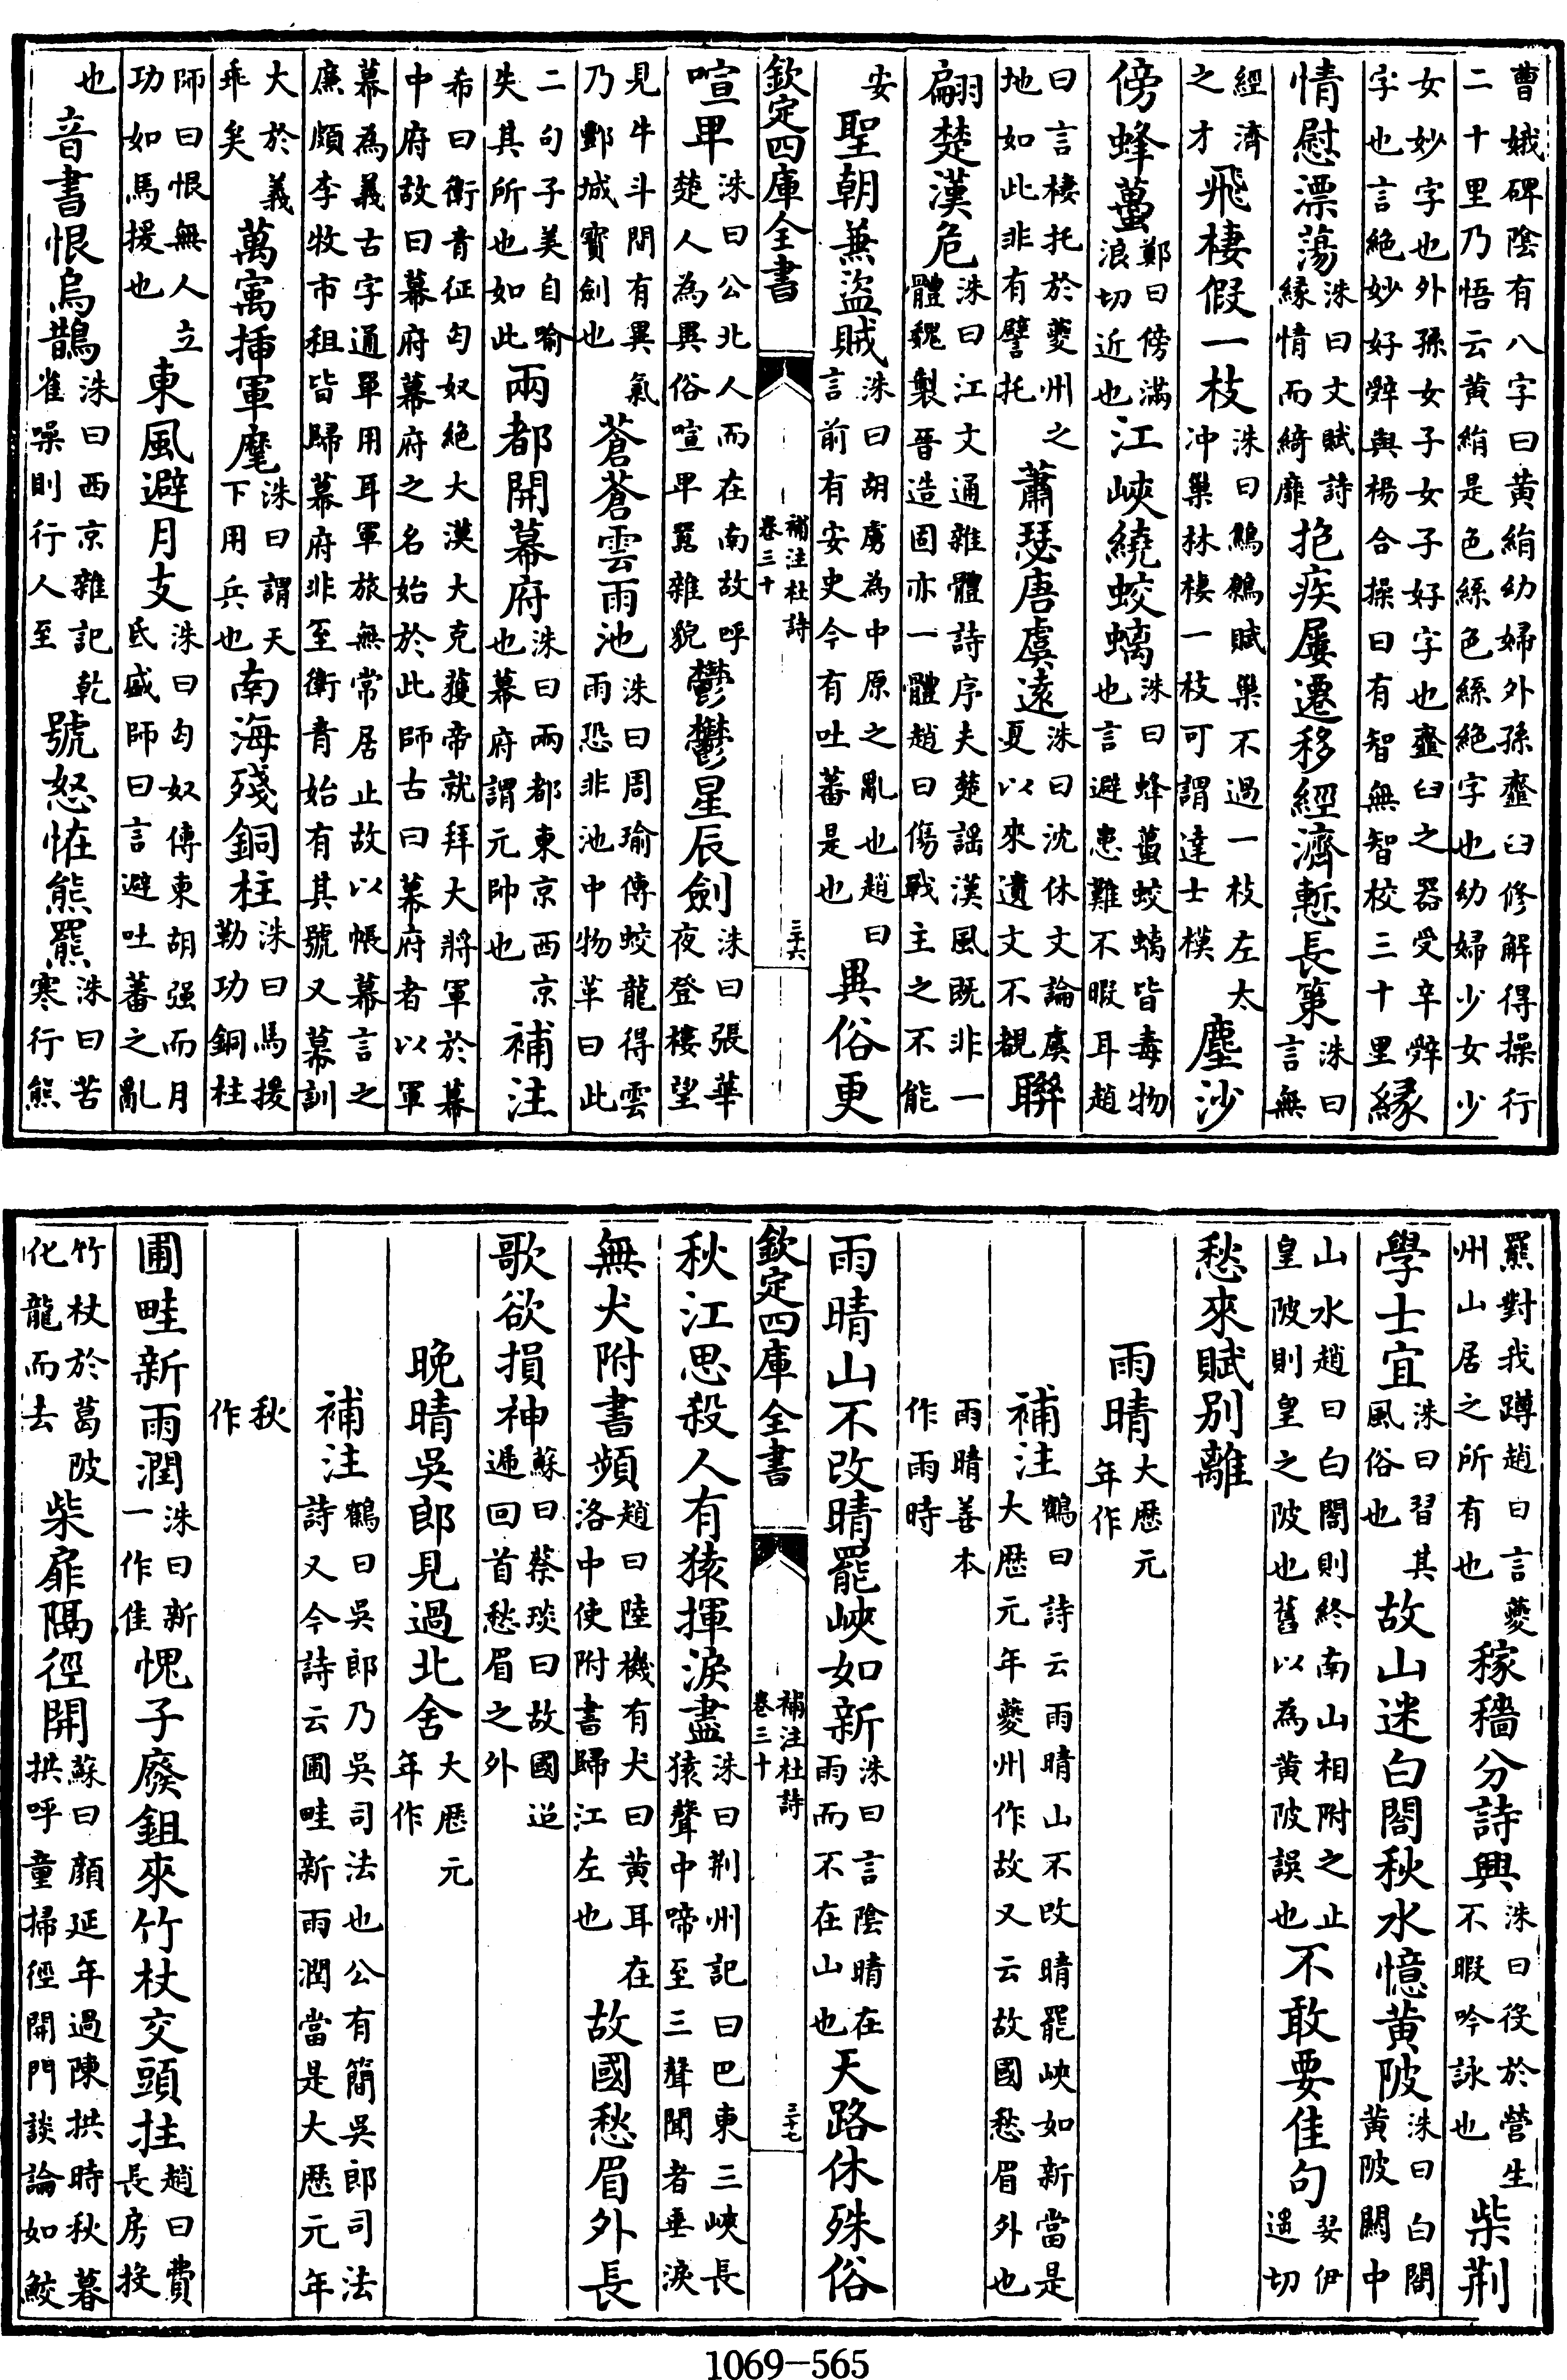 曹娥碑陰有八字曰黄絹幼婦外孫虀臼修解得操行
二十里乃悟云黄絹是色絲色絲絶字也幼婦少女少
女妙字也外孫女子女子好字也虀臼之器受辛辤
字也言絶妙好辤與楊合操曰有智無智校三十里縁
情慰漂蕩洙曰文賦詩縁情而綺靡抱疾屢遷移經濟慙長策洙曰言無
經濟之才飛棲假一枝洙曰鷦鷯賦巢不過一枝左太冲巢林棲一枝可謂達士模塵沙
傍蜂蠆鄭曰傍滿浪切近也江峽繞蛟螭洙曰蜂蠆蛟螭皆毒物也言避患難不暇耳趙
曰言棲托於夔州之地如此非有譬托蕭瑟唐虞遠洙曰沈休文論虞夏以來遺文不覩聯
翩楚漢危洙曰江文通雜體詩序夫楚謡漢風既非一體魏製晉造固亦一體趙曰傷戰主之不能
安聖朝兼盜賊洙曰胡虜為中原之亂也趙曰言前有安史今有吐蕃是也異俗更
欽定四庫全書 補注杜詩 卷三十 三十六
喧卑洙曰公北人而在南故呼楚人為異俗喧卑囂雜貌鬱鬱星辰劍洙曰張華夜登樓望
見牛斗間有異氣乃酆城寳劍也蒼蒼雲雨池洙曰周瑜傳蛟龍得雲雨恐非池中物革曰此
二句子美自喻失其所也如此兩都開幕府洙曰兩都東京西京也幕府謂元帥也補注
希曰衛青征匈奴絶大漠大克獲帝就拜大將軍於幕
中府故曰幕府幕府之名始於此師古曰幕府者以軍
幕為義古字通單用耳軍旅無常居止故以帳幕言之
廉頗李牧市租皆歸幕府非至衛青始有其號又幕訓
大於義乖矣萬㝢揷軍麾洙曰謂天下用兵也南海殘銅柱洙曰馬援勒功銅柱
師曰恨無人立功如馬援也東風避月支洙曰匈奴傳東胡强而月氐盛師曰言避吐蕃之亂
也音書恨烏鵲洙曰西京雜記乾雀噪則行人至號怒恠熊羆洙曰苦寒行熊
羆對我蹲趙曰言夔州山居之所有也稼穡分詩興洙曰役於營生不暇吟詠也柴荆
學士宜洙曰習其風俗也故山迷白閣秋水憶黄陂洙曰白閣黄陂闗中
山水趙曰白閣則終南山山相附之止皇陂則皇之陂也舊以為黄陂誤也不敢要佳句要伊遥切
愁來賦别離
雨晴大歴元年作
補注鶴曰詩云雨晴山不改晴罷峽如新當是大歴元年夔州作故又云故國愁眉外也
雨晴善本作雨時
雨晴山不改晴罷峽如新洙曰言陰晴在雨而不在山也天路休殊俗
欽定四庫全書 補注杜詩 卷三十 三十七
秋江思殺人有猿揮淚盡洙曰荆州記曰巴東三峽長猿聲中啼至三聲聞者垂淚
無犬附書頻趙曰陸機有犬曰黄耳在洛中使附書歸江左也故國愁眉外長
歌欲損神蘇曰蔡琰曰故國迢遞回首愁眉之外
晚晴吳郎見過北舍大歴元年作
補注鶴曰吳郎乃吳司法也公有簡吳郎司法詩又今詩云圃畦新雨潤當是大歴元年
秋作
圃畦新雨潤洙曰新一作佳愧子廢鉏來竹杖交頭拄趙曰費長房投
竹杖於葛陂化龍而去柴扉隔徑開蘇曰顔延年過陳拱時秋暮拱呼童掃徑開門談論如鮫
1069-565